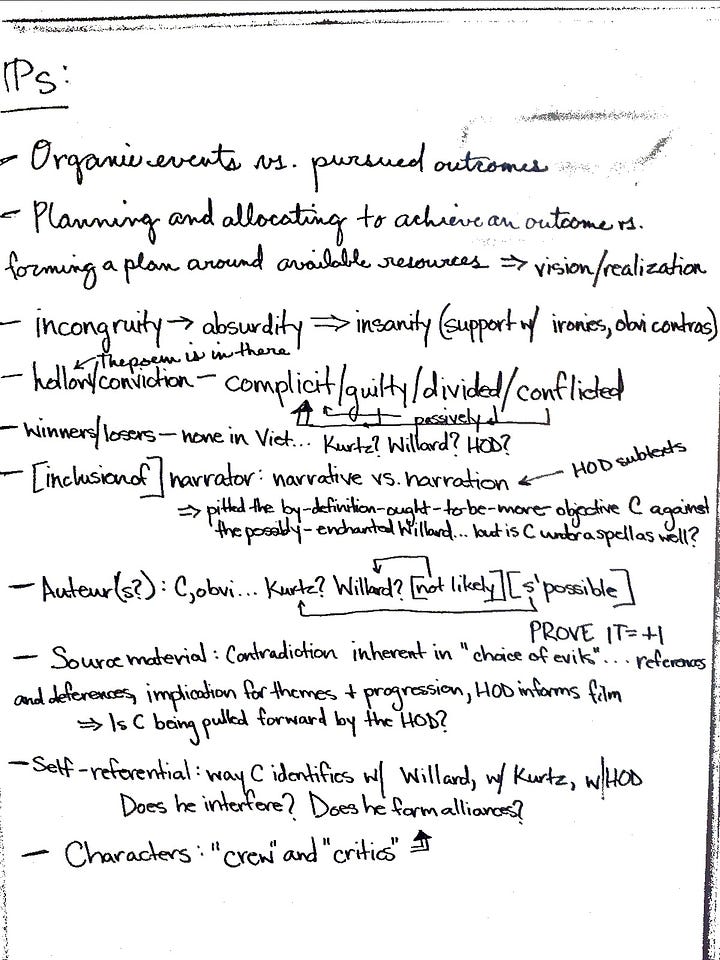 IPs:
- Organic events vs. pursued outcomes
- Planning and allocating to achieve an outcome vs.
forming a plan around available resources ⇒ vision/realization
- incongruity → absurdity ⇒ insanity (support w/ ironies, obvi contras)
The poem is in there
- hollow/conviction - complicit/guilty/divided/conflicted
passively
- Winners/losers - none in Viet... Kurtz? Willard? HOD?
- [inclusion of] narrator: narrative vs. narration ← HOD subtexts
⇒ pitted the by-definition-ought-to-be-more objective C against
the possibly-enchanted Willard... but is C undra spell as well?
- Auteur(s?): C, obvi... Kurtz? Willard? [not likely] [s'possible]
PROVE IT = +1
- Source material: Contradiction inherent in "choice of evils"... references
and deferences, implication for themes + progression, HOD informs film
⇒ Is C being pulled forward by the HOD?
- Self-referential: way C identifies w/ Willard, w/ Kurtz, w/ HOD
Does he interfere? Does he form alliances?
- Characters: "crew" and "critics" ⇑